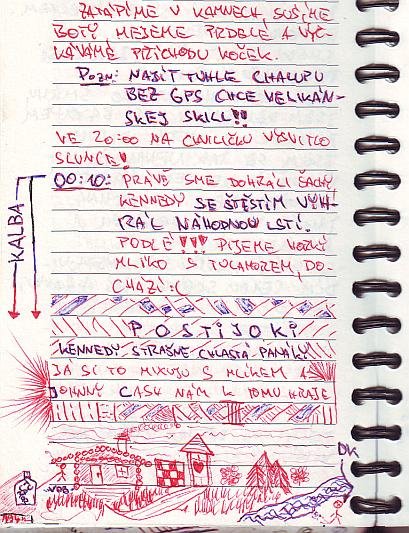 ZATÁPÍME V KAMNECH, SUŠÍME
BOTY, MEJEME PRDELE A VYČ-
KÁVÁME PŘÍCHODU KOČEK.
POZN: NAJÍT TUHLE CHALUPU
BEZ GPS CHCE VELIKÁN-
SKEJ SKILL!!
VE 20:00 NA CHVILIČKU VYSVITLO
SLUNCE!
00:10: PRÁVĚ SME DOHRÁLI ŠACHY,
KENNEDY SE ŠTĚSTÍM VYH-
RÁL NÁHODNOU LSTÍ.
PODLÉ!!! PIJEME HORKÝ
MLÍKO S TULAMOREM, DO-
CHÁZÍ :(
KALBA
POSTIJOKI
KENNEDY STRAŠNĚ CHLASTÁ PANÁKY
JÁ SI TO MIXUJU S MLÍKEM A
JOHNNY CASH NÁM K TOMU HRAJE
DK